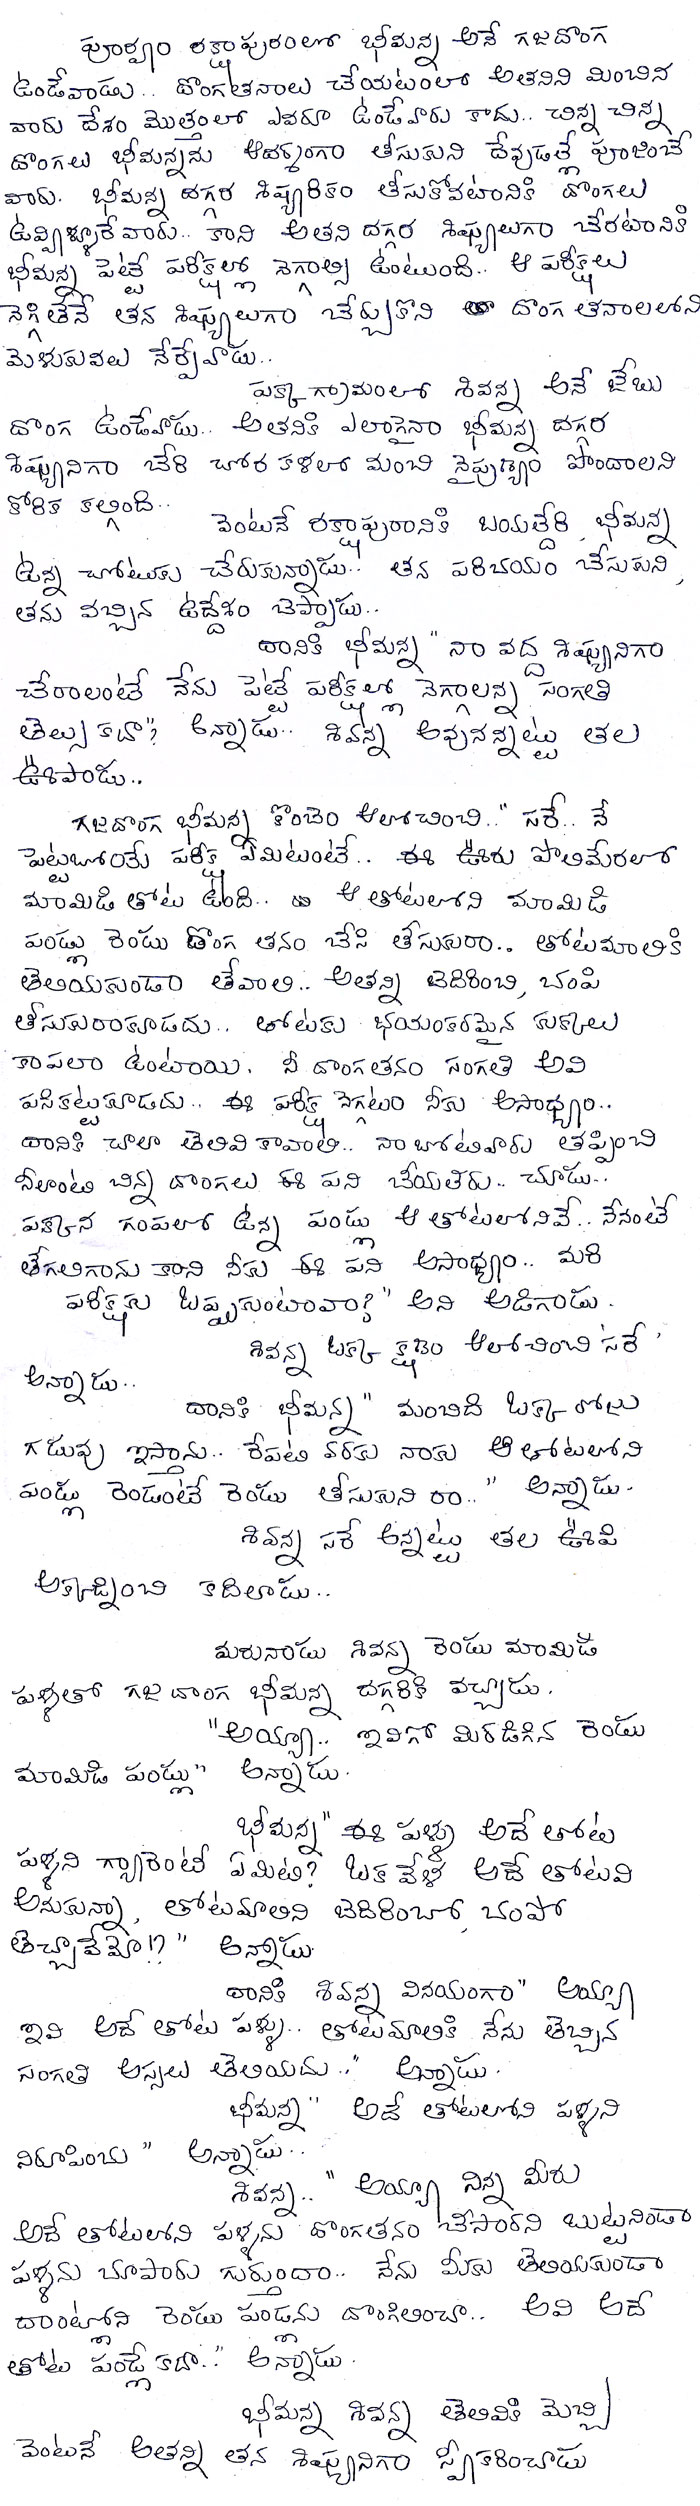 పూర్వం రక్షాపురంలో భీమన్న అనే గజదొంగ
ఉండేవాడు.. దొంగతనాలు చేయటంలో అతనిని మించిన
వారు దేశం మొత్తంలో ఎవరూ ఉండేవారు కాదు.. చిన్న చిన్న
దొంగలు భీమన్నను ఆదర్శంగా తీసుకుని దేవుడల్లే పూజించే
వారు. భీమన్న దగ్గర శిష్యరికం తీసుకోవటానికి దొంగలు
ఉవ్విళ్ళూరేవారు.. కాని అతని దగ్గర శిష్యులుగా చేరటానికి
భీమన్న పెట్టే పరీక్షల్లో నెగ్గాల్సి ఉంటుంది.. ఆ పరీక్షలు
నెగ్గితేనే తన శిష్యులుగా చేర్చుకొని దొంగ తనాలలోని
మెళుకువలు నేర్పేవాడు..
పక్క గ్రామంలో శివన్న అనే జేబు
దొంగ ఉండేవాడు.. అతనికి ఎలాగైనా భీమన్న దగ్గర
శిష్యునిగా చేరి చోర కళలో మంచి నైపుణ్యం పొందాలని
కోరిక కల్గింది..
వెంటనే రక్షాపురానికి బయల్దేరి భీమన్న
ఉన్న చోటుకు చేరుకున్నాడు.. తన పరిచయం చేసుకుని,
తను వచ్చిన ఉద్దేశం చెప్పాడు..
దానికి భీమన్న "నా వద్ద శిష్యునిగా
చేరాలంటే నేను పెట్టే పరీక్షల్లో నెగ్గాలన్న సంగతి
తెల్సు కదా"? అన్నాడు.. శివన్న అవునన్నట్టు తల
ఊపాడు..
గజదొంగ భీమన్న కొంచెం ఆలోచించి.." సరే.. నే
పెట్టబోయే పరీక్ష ఏమిటంటే.. ఈ ఊరు పొలిమేరలో
మామిడి తోట ఉంది.. ఆ తోటలోని మామిడి
పండ్లు రెండు దొంగ తనం చేసి తీసుకురా.. తోటమాలికి
తెలియకుండా తేవాలి.. అతన్ని బెదిరించి, చంపి
తీసుకురాకూడదు.. తోటకు భయంకరమైన కుక్కలు
కాపలా ఉంటాయి. నీ దొంగతనం సంగతి అవి
పసికట్టకూడదు.. ఈ పరీక్ష నెగ్గటం నీకు అసాధ్యం..
దానికి చాలా తెలివి కావాలి.. నా బోటివారు తప్పించి
నీలాంటి చిన్న దొంగలు ఈ పని చేయలేరు.. చూడు..
పక్కన గంపలో ఉన్న పండ్లు ఆ తోటలోనివే.. నేనంటే
తేగలిగాను కాని నీకు ఈ పని అసాధ్యం.. మరి
పరీక్షకు ఒప్పుకుంటావా?" అని అడిగాడు.
శివన్న ఒక్క క్షణం ఆలోచించి 'సరే'
అన్నాడు..
దానికి భీమన్న" మంచిది ఒక్క రోజు
గడువు ఇస్తాను.. రేపటి వరకు నాకు ఆ తోటలోని
పండ్లు రెండంటే రెండు తీసుకుని రా.." అన్నాడు.
శివన్న సరే అన్నట్టు తల ఊపి
అక్కణ్నించి కదిలాడు..
మరునాడు శివన్న రెండు మామిడి
పళ్ళతో గజ దొంగ భీమన్న దగ్గరికి వచ్చాడు.
"అయ్యా.. ఇవిగో మీరడిగిన రెండు
మామిడి పండ్లు" అన్నాడు.
భీమన్న" ఈ పళ్ళు అదే తోట
పళ్ళని గ్యారెంటీ ఏమిటి? ఒక వేళ అదే తోటవి
అనుకున్నా, తోటమాలిని బెదిరించో, చంపో
తెచ్చావేమో!?" అన్నాడు.
దానికి శివన్న వినయంగా" అయ్యా
ఇవి అదే తోట పళ్ళు.. తోటమాలికి నేను తెచ్చిన
సంగతి అస్సలు తెలియదు.." అన్నాడు.
భీమన్న" అదే తోటలోని పళ్ళని
నిరూపించు" అన్నాడు..
శివన్న.. "అయ్యా నిన్న మీరు
అదే తోటలోని పళ్ళను దొంగతనం చేసారని బుట్టనిండా
పళ్ళను చూపారు గుర్తుందా.. నేను మీకు తెలియకుండా
దాంట్లోని రెండు పండ్లను దొంగిలించా.. అవి అదే
తోట పండ్లే కదా.." అన్నాడు.
భీమన్న శివన్న తెలివికి మెచ్చి
వెంటనే అతన్ని తన శిష్యునిగా స్వీకరించాడు